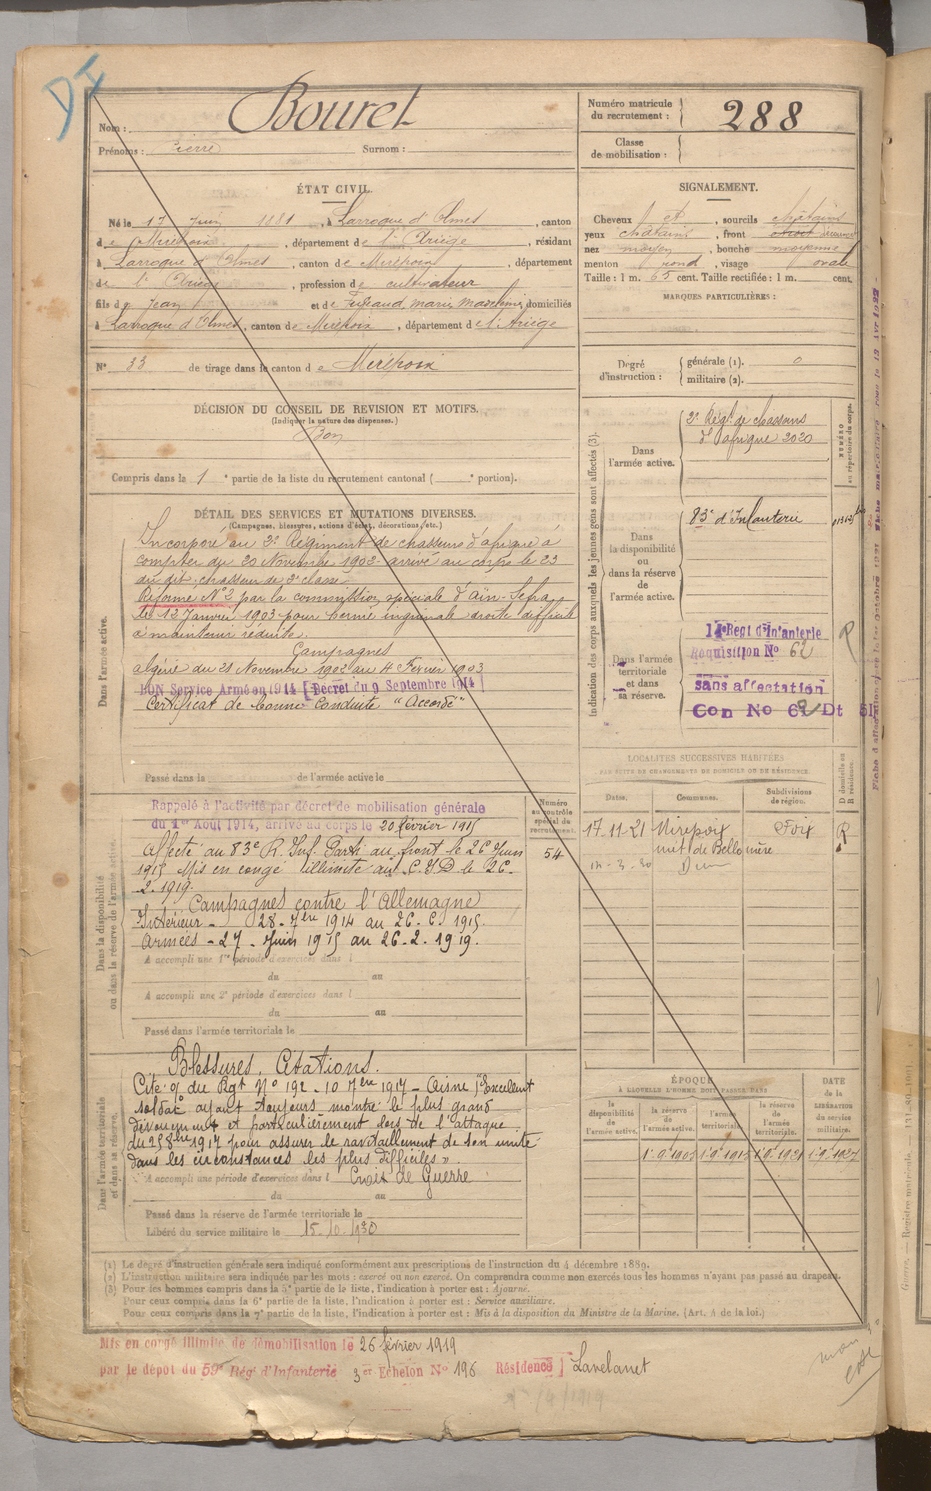 DI
Nom : Bouret
Prénoms : Pierre Surnom :
Numéro matricule du recrutement : 288
Classe de mobilisation :
ÉTAT CIVIL.
Né le 17 Juin 1881, à Larroque d'Olmes, canton
de Mirepoix, département de l'Ariège, résidant
à Larroque d'Olmes, canton de Mirepoix, département
de l'Ariège, profession de cultivateur
fils de Jean et de marie, domiciliés
à Larroque d'Olmes, canton de Mirepoix, département de l'Ariège
N° 33 de tirage dans le canton de Mirepoix
DÉCISION DU CONSEIL DE REVISION ET MOTIFS.
(Indiquer la nature des dispenses.)
Bon
Compris dans la 1e partie de la liste du recrutement cantonal ( e portion).
SIGNALEMENT.
Cheveux et, sourcils châtains
yeux châtains, front
nez moyen, bouche moyenne
menton rond, visage ovale
Taille : 1 m. 65 cent. Taille rectifiée : 1 m. cent.
MARQUES PARTICULIÈRES :
Degré d'instruction :
générale (1). 0
militaire (2).
DÉTAIL DES SERVICES ET MUTATIONS DIVERSES.
(Campagnes, blessures, actions d'éclat, décorations, etc.)
Dans l'armée active.
Incorporé au 2e Régiment de chasseurs d'afrique à
compter du 20 Novembre 1902 arrivé au corps le 23
du dit, chasseur de 2e classe
Réformé N°2 par la commission spéciale d'aïn-Sefra
le 12 Janvier 1903 pour hernie inguinale droite difficile
à maintenir réduite.
Campagnes
algérie du 21 Novembre 1902 au 4 Février 1903
BON Service Armé en 1914 [Décret du 9 Septembre 1914]
Certificat de bonne conduite "Accordé"
Passé dans la de l'armée active le
Indication des corps auxquels les jeunes gens sont affectés (3).
NUMÉRO au répertoire du corps.
Dans l'armée active.
2e Régt de chasseurs
d'afrique 2020
Dans la disponibilité ou dans la réserve de l'armée active.
83e d'Infanterie
Dans l'armée territoriale et dans sa réserve.
14e Regt d'Infanterie
Requisition N° 62
sans affectation
Con No 62 Dt 5I
R
Dans la disponibilité ou dans la réserve de l'armée active.
Rappelé à l'activité par décret de mobilisation générale
du 1er Août 1914, arrivé au corps le 20 février 1915
Affecté au 83e R. Inf. Parti au front le 26 Juin
1915 Mis en congé illimité au le 26.
2.1919.
Campagnes contre l'Allemagne
Intérieur - 28 - 7bre 1914 au 26. 6. 1915.
Armées - 27 - Juin 1915 au 26. 2. 1919.
A accompli une 1re période d'exercices dans l
du au
A accompli une 2e période d'exercices dans l
du au
Passé dans l'armée territoriale le
Numéro au contrôle spécial du recrutement.
54
LOCALITÉS SUCCESSIVES HABITÉES
PAR SUITE DE CHANGEMENTS DE DOMICILE OU DE RÉSIDENCE.
Dates. Communes. Subdivisions de région. D domicile ou R résidence.
17-11-21 Mirepoix Foix R
Dans l'armée territoriale et dans sa réserve.
Blessures, Citations.
Cité O/ du Rgt N° 192 - 10 7bre 1917 - Aisne "Excellent
soldat ayant toujours montré le plus grand
dévouement et particulièrement lors de l'attaque
pour assurer le ravitaillement de son unité
dans les circonstances les plus difficiles".
A accompli une période d'exercices dans l Croix de Guerre
du au
Passé dans la réserve de l'armée territoriale le
Libéré du service militaire le 15.10.1930
ÉPOQUE
À LAQUELLE L'HOMME DOIT PASSER DANS
la disponibilité de l'armée active. la réserve de l'armée active. l'armée territoriale. la réserve de l'armée territoriale.
DATE de la LIBÉRATION du service militaire.
(1) Le degré d'instruction générale sera indiqué conformément aux prescriptions de l'instruction du 4 décembre 1889.
(2) L'instruction militaire sera indiquée par les mots : exercé ou non exercé. On comprendra comme non exercés tous les hommes n'ayant pas passé au drapeau.
(3) Pour les hommes compris dans la 5e partie de la liste, l'indication à porter est : Ajourné.
Pour ceux compris dans la 6e partie de la liste, l'indication à porter est : Service auxiliaire.
Pour ceux compris dans la 7e partie de la liste, l'indication à porter est : Mis à la disposition du Ministre de la Marine. (Art. 4 de la loi.)
Mis en congé illimité de démobilisation le 26 février 1919
par le dépôt du 59e Rég d'Infanterie 3er Echelon N° 196 Résidence ] Lavelanet